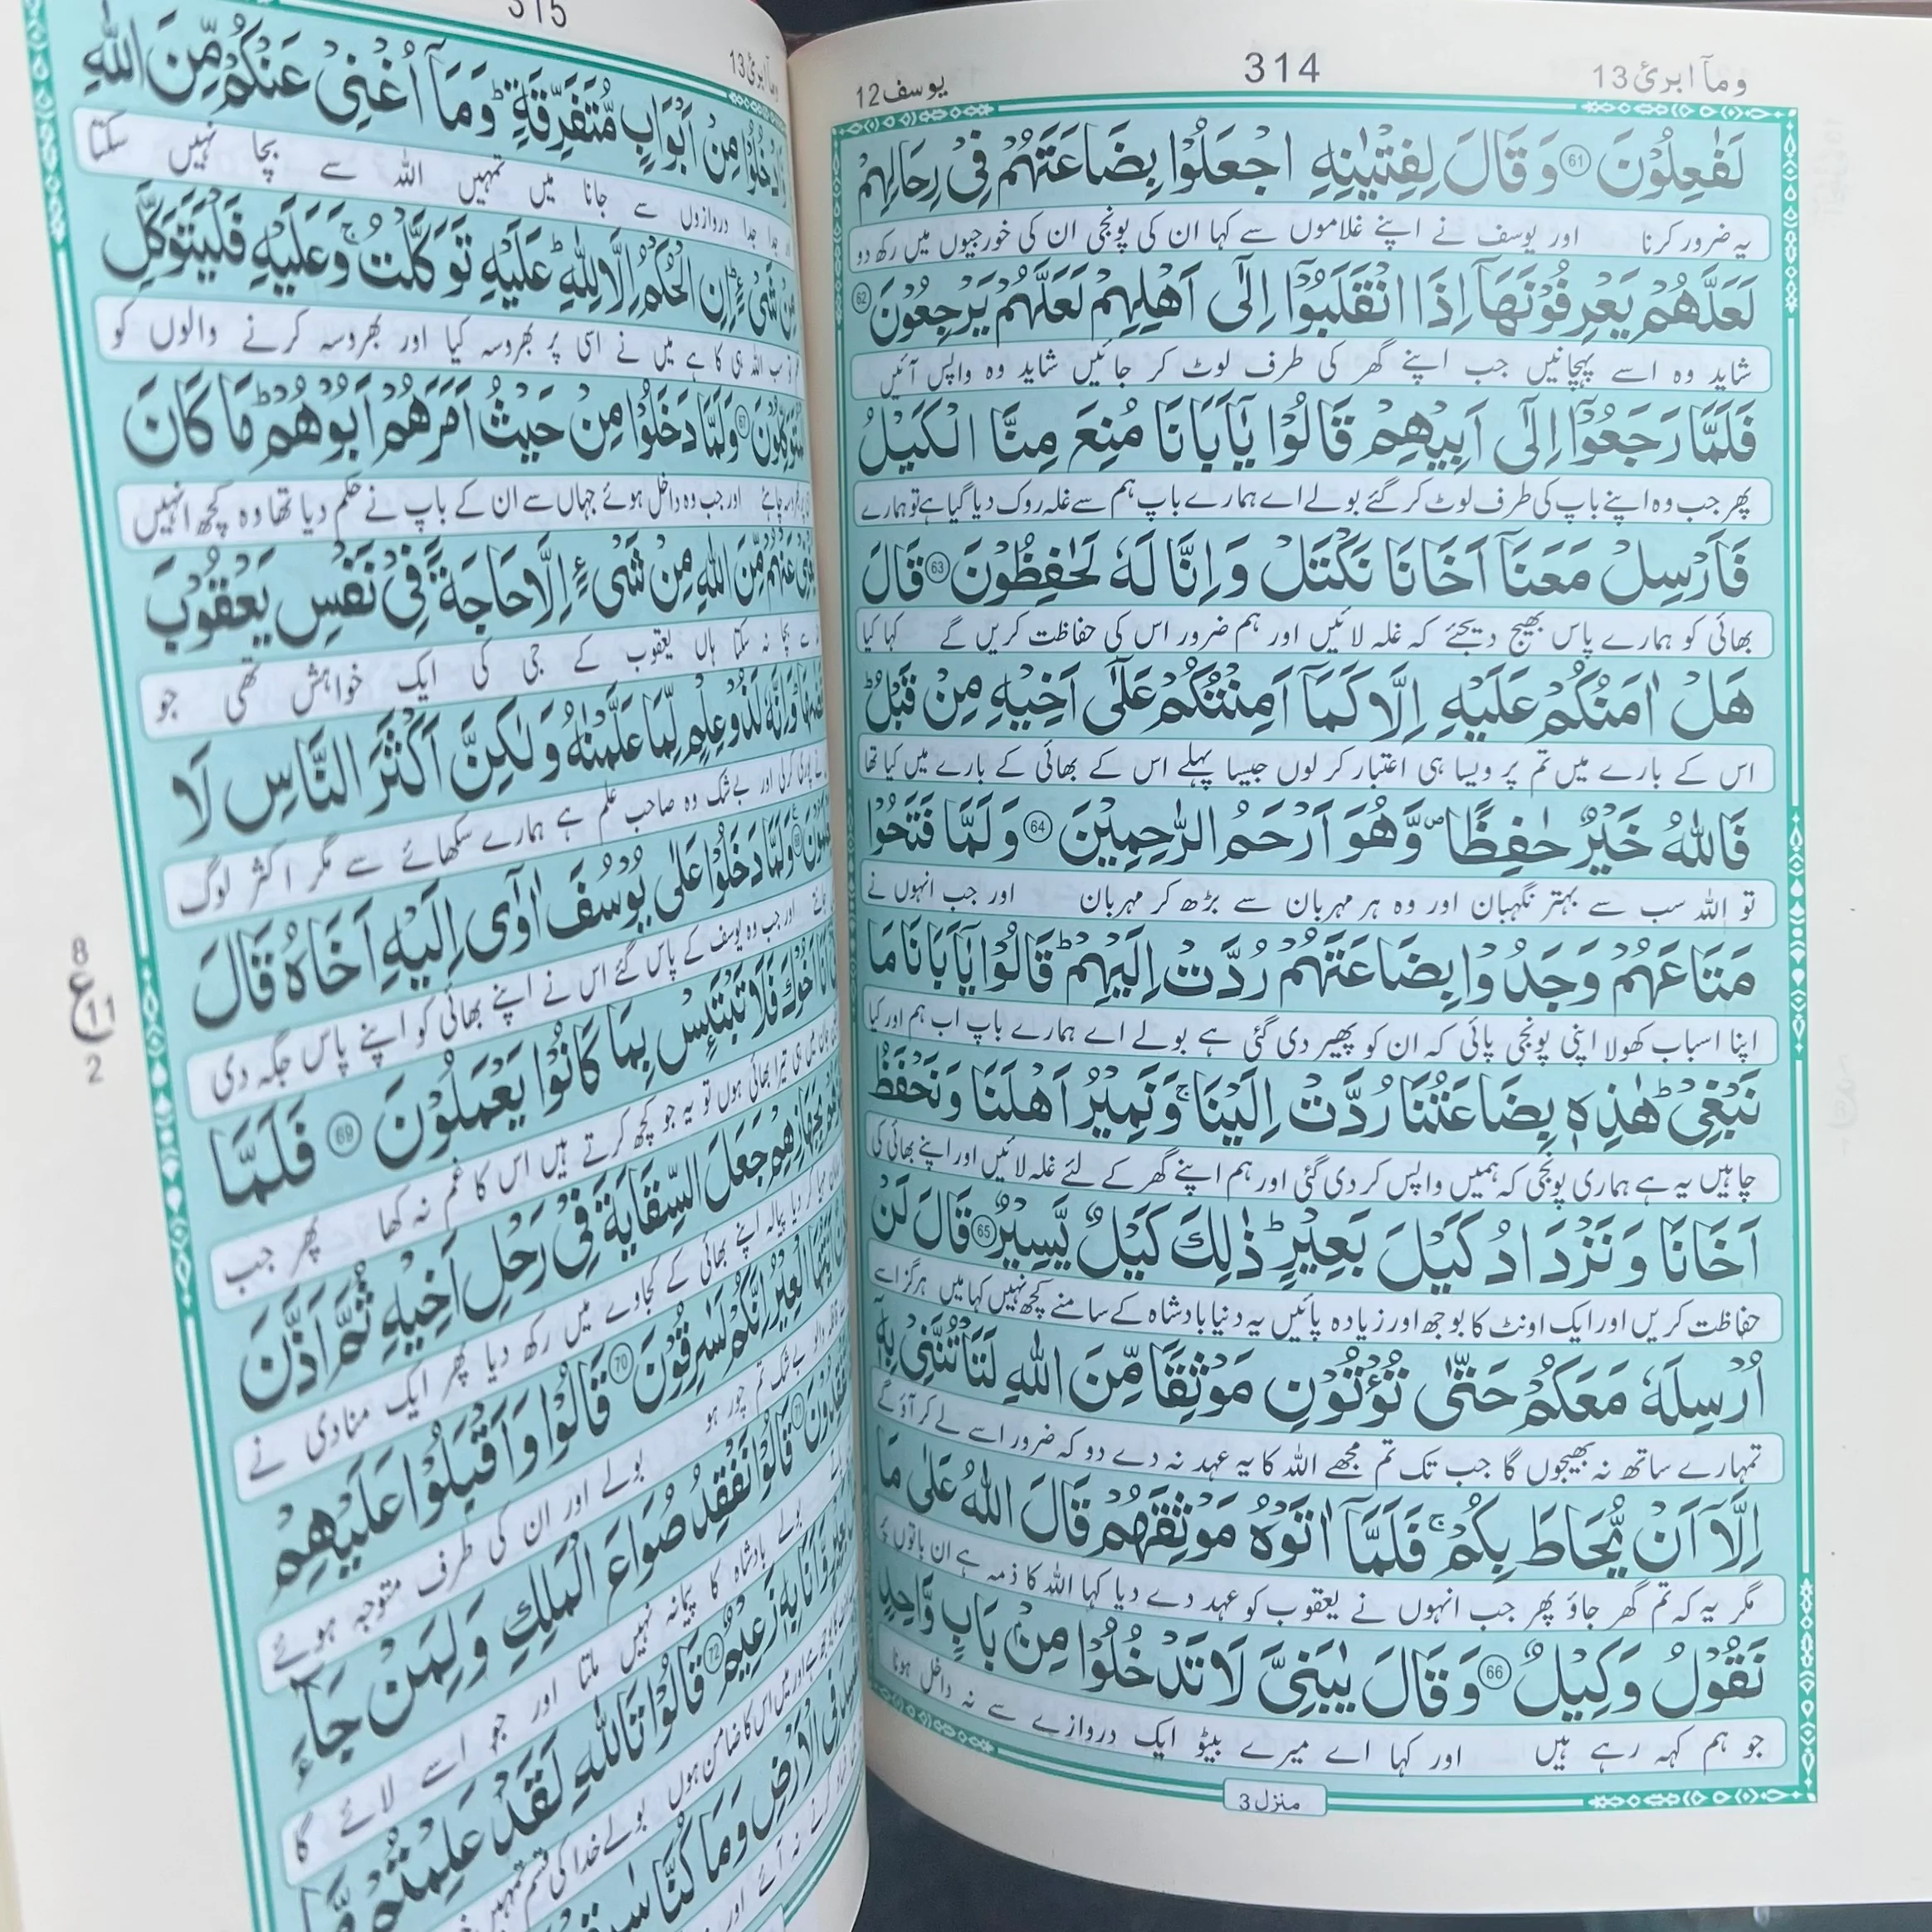 وماۤ ابرئ 13
314
یوسف 12
لَفٰعِلُوْنَ 61 وَ قَالَ لِفِتْیٰنِهِ اجْعَلُوْا بِضَاعَتَهُمْ فِیْ رِحَالِهِمْ
یہ ضرور کرنا اور یوسف نے اپنے غلاموں سے کہا ان کی پونجی ان کی خورجیوں میں رکھ دو
لَعَلَّهُمْ یَعْرِفُوْنَهَاۤ اِذَا انْقَلَبُوْۤا اِلٰۤی اَهْلِهِمْ لَعَلَّهُمْ یَرْجِعُوْنَ 62
شاید وہ اسے پہچانیں جب اپنے گھر کی طرف لوٹ کر جائیں شاید وہ واپس آئیں
فَلَمَّا رَجَعُوْۤا اِلٰۤی اَبِیْهِمْ قَالُوْا یٰۤاَبَانَا مُنِعَ مِنَّا الْكَیْلُ
پھر جب وہ اپنے باپ کی طرف لوٹ کر گئے بولے اے ہمارے باپ ہم سے غلہ روک دیا گیا ہے تو ہمارے
فَاَرْسِلْ مَعَنَاۤ اَخَانَا نَكْتَلْ وَ اِنَّا لَهٗ لَحٰفِظُوْنَ 63 قَالَ
بھائی کو ہمارے پاس بھیج دیجئے کہ غلہ لائیں اور ہم ضرور اس کی حفاظت کریں گے کہا کیا
هَلْ اٰمَنُكُمْ عَلَیْهِ اِلَّا كَمَاۤ اَمِنْتُكُمْ عَلٰۤی اَخِیْهِ مِنْ قَبْلُ ؕ
اس کے بارے میں تم پر ویسا ہی اعتبار کر لوں جیسا پہلے اس کے بھائی کے بارے میں کیا تھا
فَاللّٰهُ خَیْرٌ حٰفِظًا ۪ وَّ هُوَ اَرْحَمُ الرّٰحِمِیْنَ 64 وَ لَمَّا فَتَحُوْا
تو اللہ سب سے بہتر نگہبان اور وہ ہر مہربان سے بڑھ کر مہربان اور جب انہوں نے
مَتَاعَهُمْ وَجَدُوْا بِضَاعَتَهُمْ رُدَّتْ اِلَیْهِمْ ؕ قَالُوْا یٰۤاَبَانَا مَا
اپنا اسباب کھولا اپنی پونجی پائی کہ ان کو پھیر دی گئی ہے بولے اے ہمارے باپ اب ہم اور کیا
نَبْغِیْ ؕ هٰذِهٖ بِضَاعَتُنَا رُدَّتْ اِلَیْنَا ۚ وَ نَمِیْرُ اَهْلَنَا وَ نَحْفَظُ
چاہیں یہ ہے ہماری پونجی کہ ہمیں واپس کر دی گئی اور ہم اپنے گھر کے لئے غلہ لائیں اور اپنے بھائی کی
اَخَانَا وَ نَزْدَادُ كَیْلَ بَعِیْرٍ ؕ ذٰلِكَ كَیْلٌ یَّسِیْرٌ 65 قَالَ لَنْ
حفاظت کریں اور ایک اونٹ کا بوجھ اور زیادہ پائیں یہ دنیا بادشاہ کے سامنے کچھ نہیں کہا میں ہرگز اسے
اُرْسِلَهٗ مَعَكُمْ حَتّٰی تُؤْتُوْنِ مَوْثِقًا مِّنَ اللّٰهِ لَتَاْتُنَّنِیْ بِهٖۤ
تمہارے ساتھ نہ بھیجوں گا جب تک تم مجھے اللہ کا یہ عہد نہ دے دو کہ ضرور اسے لے کر آؤ گے
اِلَّاۤ اَنْ یُّحَاطَ بِكُمْ ۚ فَلَمَّاۤ اٰتَوْهُ مَوْثِقَهُمْ قَالَ اللّٰهُ عَلٰی مَا
مگر یہ کہ تم گھر جاؤ پھر جب انہوں نے یعقوب کو عہد دے دیا کہا اللہ کا ذمہ ہے ان باتوں پر
نَقُوْلُ وَكِیْلٌ 66 وَ قَالَ یٰبَنِیَّ لَا تَدْخُلُوْا مِنْۢ بَابٍ وَّاحِدٍ
جو ہم کہہ رہے ہیں اور کہا اے میرے بیٹو ایک دروازے سے نہ داخل ہونا
منزل 3
وماۤ ابرئ 13
315
وَّ ادْخُلُوْا مِنْ اَبْوَابٍ مُّتَفَرِّقَةٍ ؕ وَ مَاۤ اُغْنِیْ عَنْكُمْ مِّنَ اللّٰهِ
جدا جدا دروازوں سے جانا میں تمہیں اللہ سے بچا نہیں سکتا
مِنْ شَیْءٍ ؕ اِنِ الْحُكْمُ اِلَّا لِلّٰهِ ؕ عَلَیْهِ تَوَكَّلْتُ ۚ وَ عَلَیْهِ فَلْیَتَوَكَّلِ
سب اللہ ہی کا ہے میں نے اسی پر بھروسہ کیا اور بھروسہ کرنے والوں کو
الْمُتَوَكِّلُوْنَ 67 وَ لَمَّا دَخَلُوْا مِنْ حَیْثُ اَمَرَهُمْ اَبُوْهُمْ ؕ مَا كَانَ
چاہئے اور جب وہ داخل ہوئے جہاں سے ان کے باپ نے حکم دیا تھا وہ کچھ انہیں
یُغْنِیْ عَنْهُمْ مِّنَ اللّٰهِ مِنْ شَیْءٍ اِلَّا حَاجَةً فِیْ نَفْسِ یَعْقُوْبَ
سے بچا نہ سکتا ہاں یعقوب کے جی کی ایک خواہش تھی جو
قَضٰىهَا ؕ وَ اِنَّهٗ لَذُوْ عِلْمٍ لِّمَا عَلَّمْنٰهُ وَ لٰكِنَّ اَكْثَرَ النَّاسِ لَا
نے پوری کر لی اور بے شک وہ صاحب علم ہے ہمارے سکھائے سے مگر اکثر لوگ
وَ لَمَّا دَخَلُوْا عَلٰی یُوْسُفَ اٰوٰۤی اِلَیْهِ اَخَاهُ قَالَ
اور جب وہ یوسف کے پاس گئے اس نے اپنے بھائی کو اپنے پاس جگہ دی
اَخُوْكَ فَلَا تَبْتَىِٕسْ بِمَا كَانُوْا یَعْمَلُوْنَ 69 فَلَمَّا
میں ہی تیرا بھائی ہوں تو یہ جو کچھ کرتے ہیں اس کا غم نہ کھا پھر جب
بِجَهَازِهِمْ جَعَلَ السِّقَایَةَ فِیْ رَحْلِ اَخِیْهِ ثُمَّ اَذَّنَ
کر دیا پیالہ اپنے بھائی کے کجاوے میں رکھ دیا پھر ایک منادی نے
اَیَّتُهَا الْعِیْرُ اِنَّكُمْ لَسٰرِقُوْنَ 70 قَالُوْا وَ اَقْبَلُوْا عَلَیْهِمْ
بے شک تم چور ہو بولے اور ان کی طرف متوجہ ہوئے
71 قَالُوْا نَفْقِدُ صُوَاعَ الْمَلِكِ وَ لِمَنْ جَآءَ
بولے بادشاہ کا پیمانہ نہیں ملتا اور جو اسے لائے گا
وَّ اَنَا بِهٖ زَعِیْمٌ 72 قَالُوْا تَاللّٰهِ لَقَدْ عَلِمْتُمْ مَّا
اور میں اس کا ضامن ہوں بولے خدا کی قسم تمہیں
فِی الْاَرْضِ وَ مَا كُنَّا
نہ آئے اور
8
ع
11
2